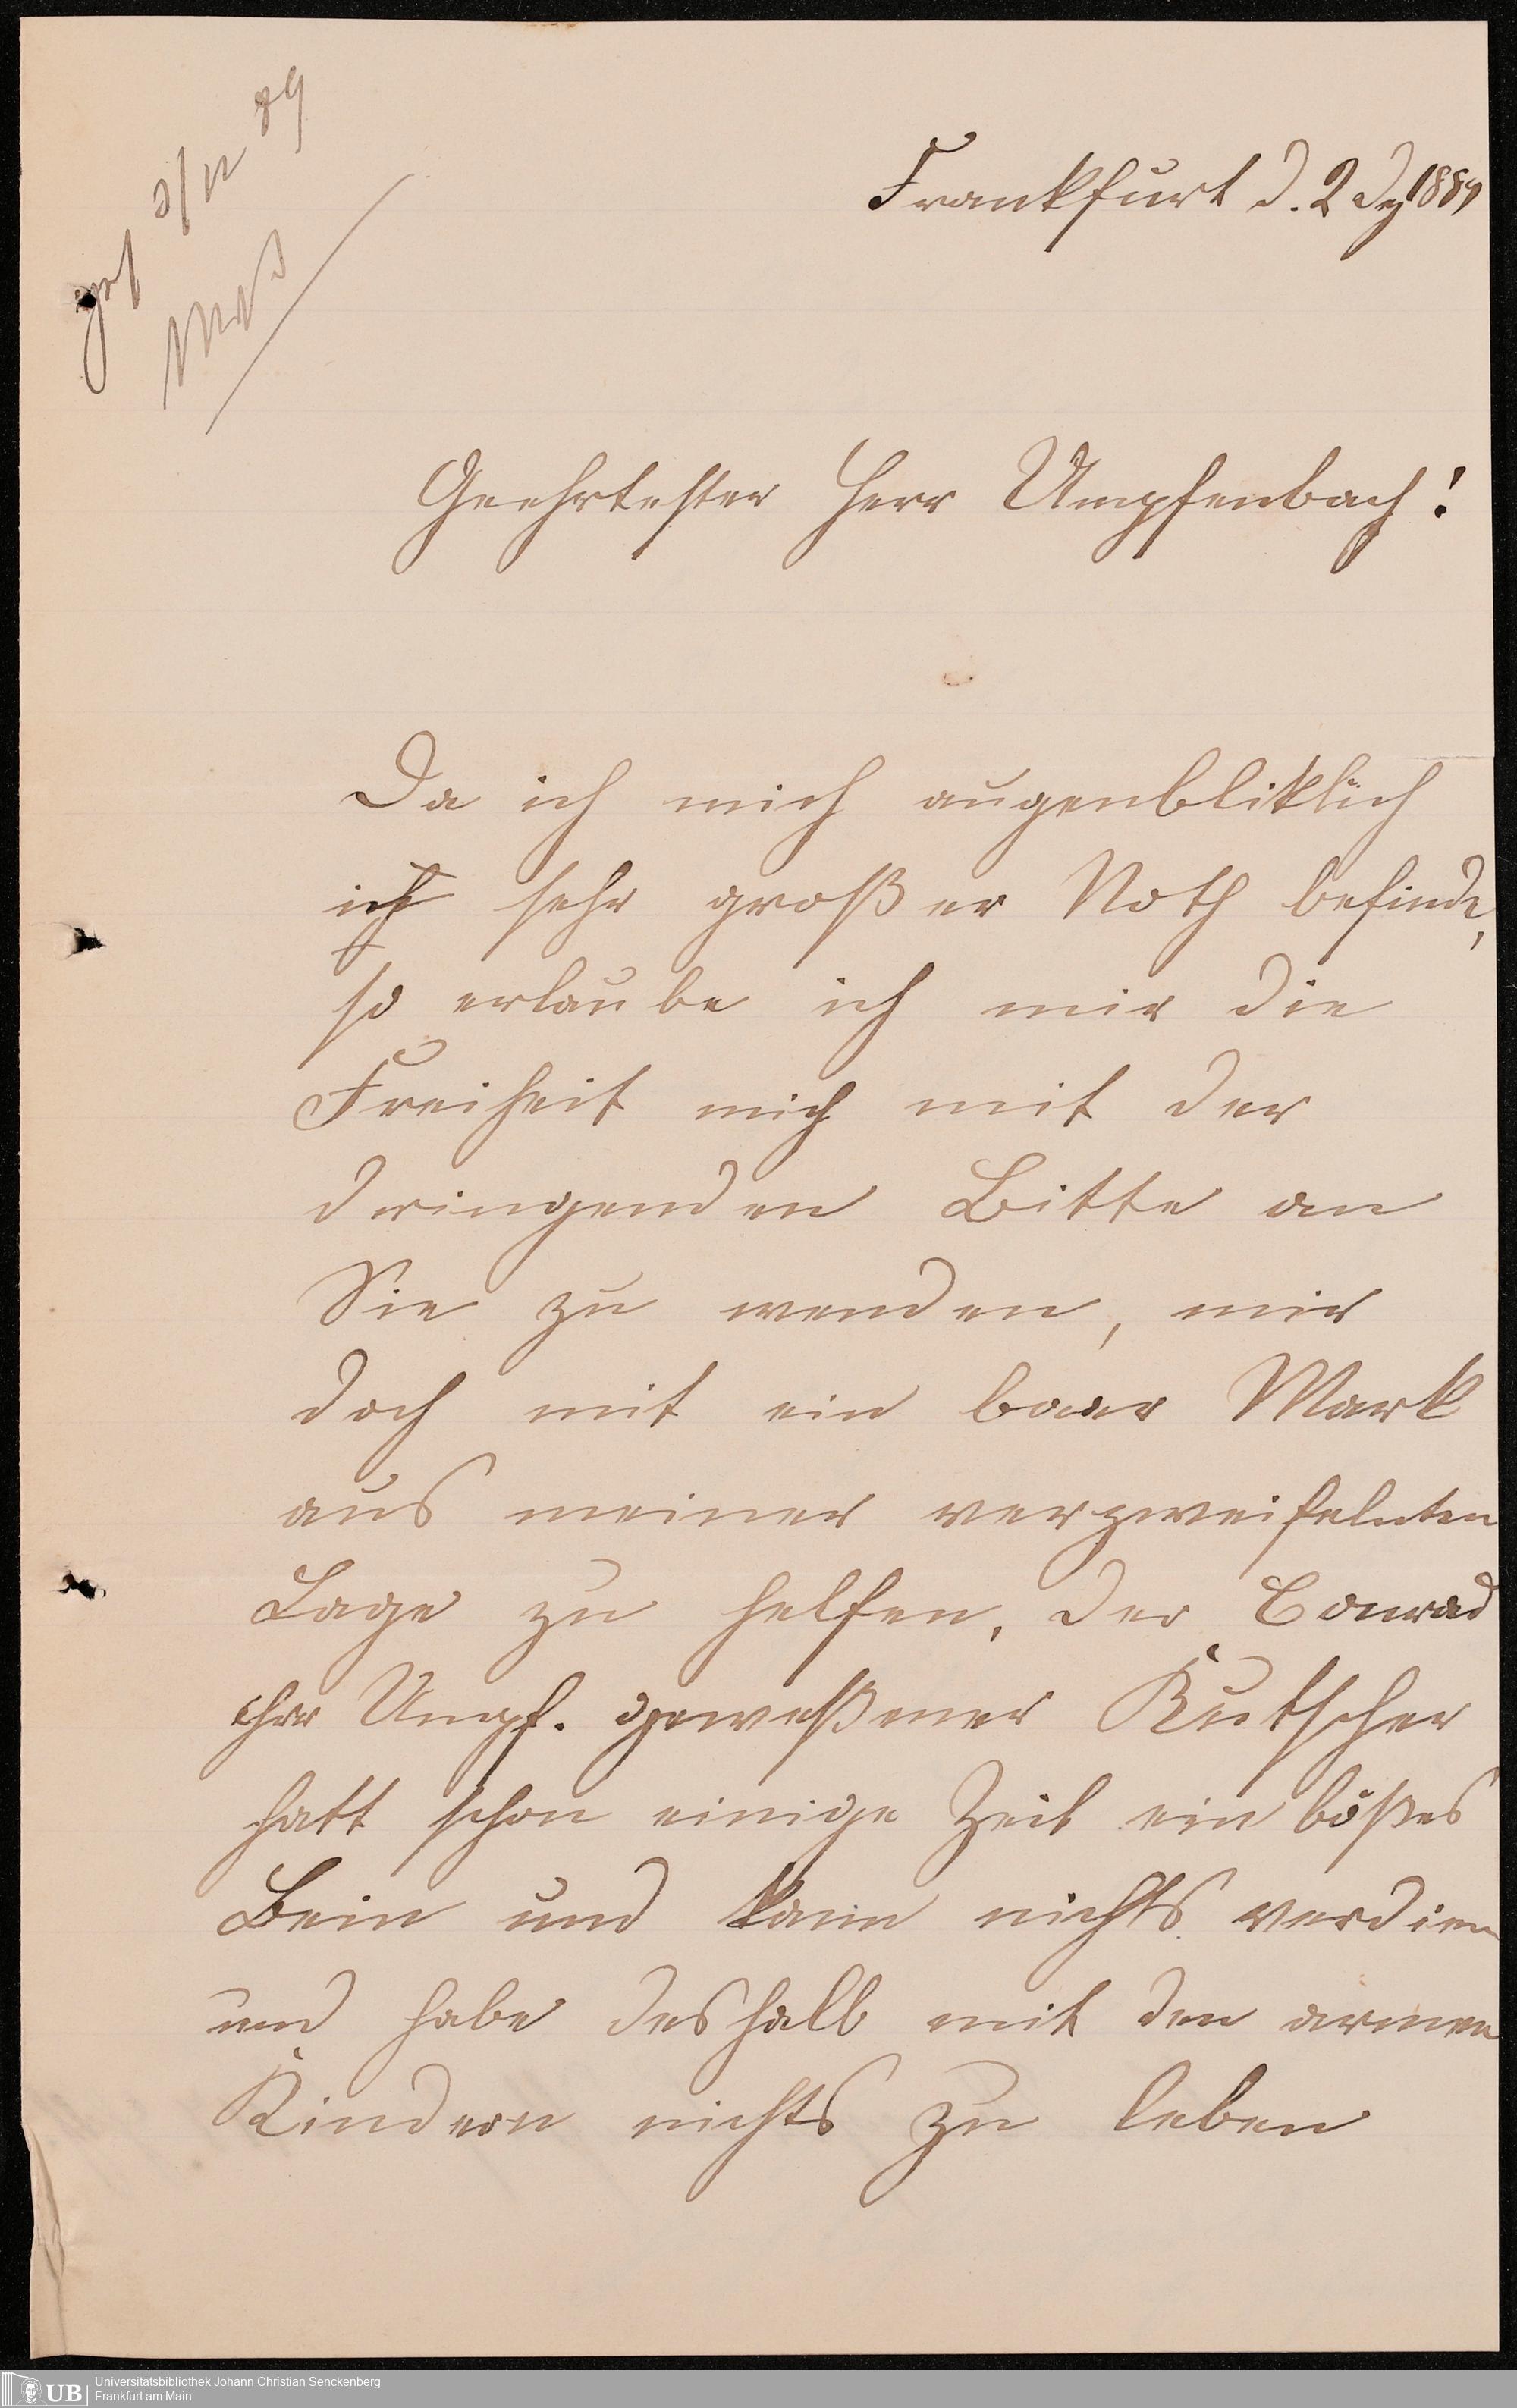 3/12 89
Frankfurt d. 2 Dz 1889
Geehrtester Herr Umpfenbach!
Da ich mich augenbliklich
ich sehr großer Noth befinde,
so erlaube ich mir die
Freiheit mich mit der
dringenden Bitte an
Sie zu wenden, mir
doch mit ein baar Mark
aus meiner verzweifelnten
Lage zu helfen, der Conrad
Umpf. geweßener Kutscher
hatt schon einige Zeit ein bößes
Bein und kann nichts verdien
und habe deshalb mit den armen
Kindern nichts zu leben
UB Universitätsbibliothek Johann Christian Senckenberg
Frankfurt am Main